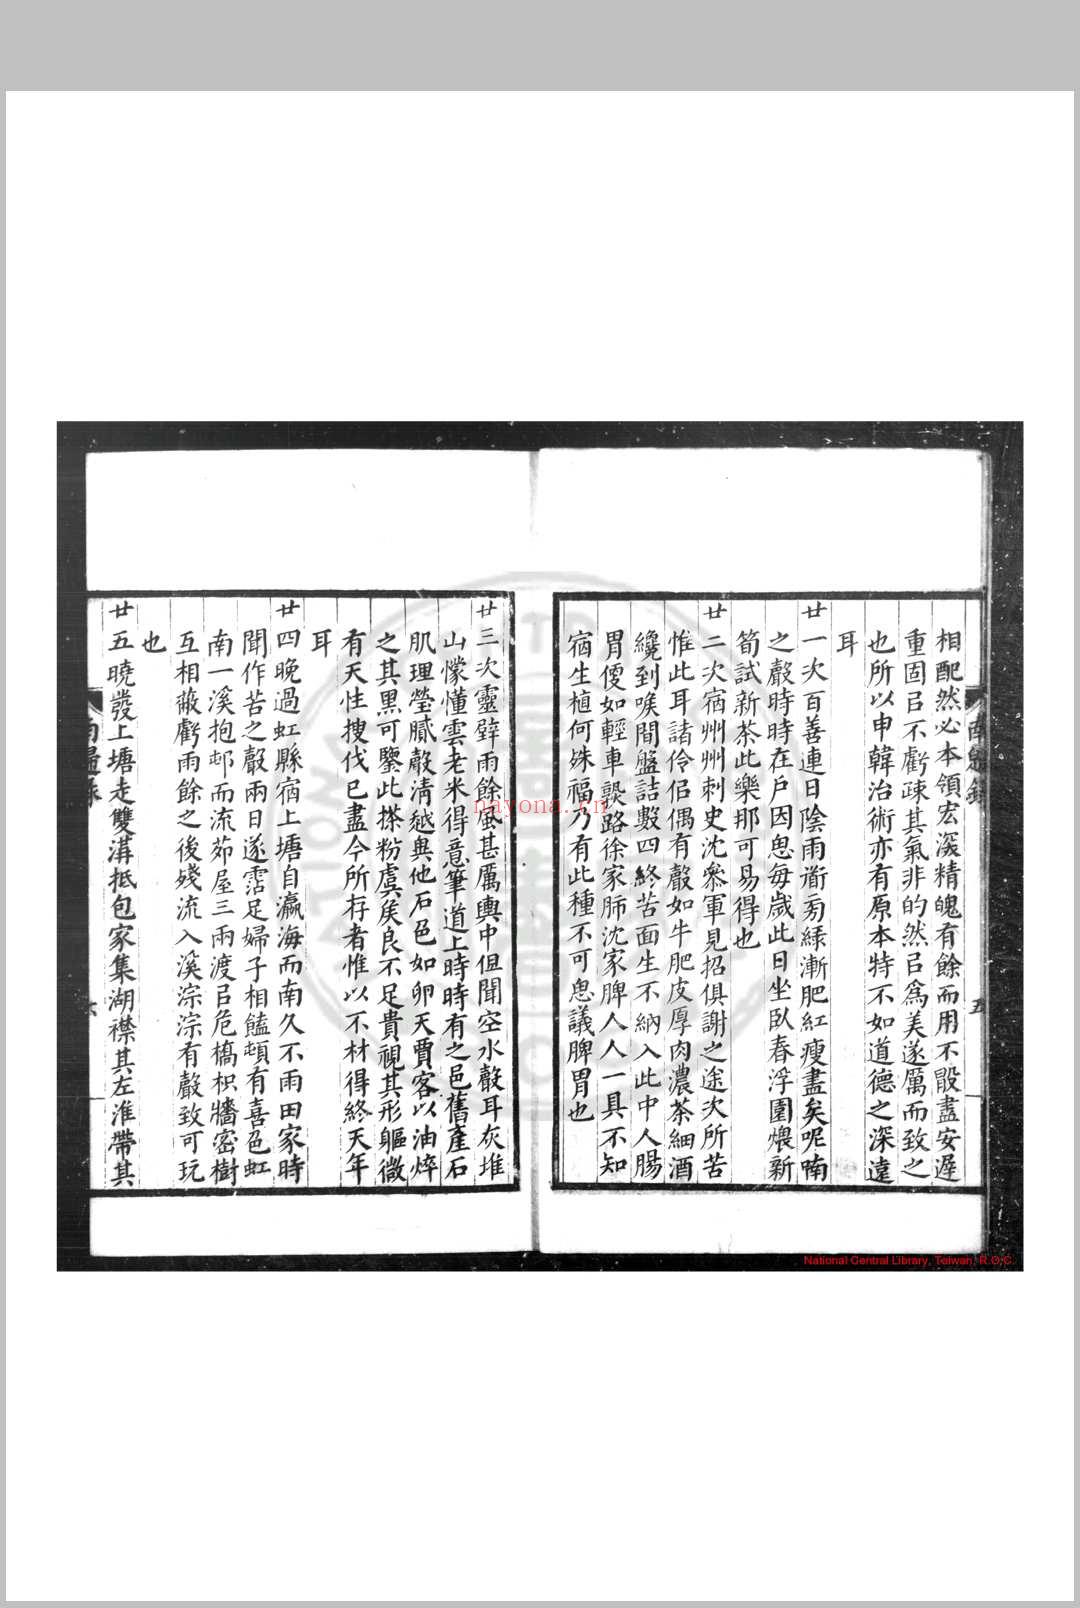 相配然必本領宏深精魄有餘而用不殷盡安遲
重固㠯不虧疎其氣非的然㠯爲美遂厲而致之
也所以申韓治術亦有原本特不如道德之深遠
耳
廿一次百善連日陰雨道旁綠漸肥紅瘦盡矣呢喃
之聲時時在戶因思每歲此日坐臥春浮園煨新
筍試新茶此樂那可易得也
廿二次宿州州刺史沈參軍見招俱謝之途次所苦
惟此耳諸伶侶偶有聲如牛肥皮厚肉濃茶細酒
纔到喉間盤詰數四終苦面生不納入此中人腸
胃便如輕車熟路徐家肺沈家脾人人一具不知
宿生植何殊福乃有此種不可思議脾胃也
五
廿三次靈壁雨餘風甚厲輿中但聞空水聲耳灰堆
山懞懂雲老米得意筆道上時時有之邑舊產石
肌理瑩膩聲清越與他石邑如卵天賈客以油焠
之其黑可鑒此搽粉虞侯良不足貴視其形軀微
有天性搜伐已盡今所存者惟以不材得終天年
耳
廿四晚過虹縣宿上塘自瀛海而南久不雨田家時
聞作苦之聲兩日遂霑足婦子相饁頓有喜色虹
南一溪抱邨而流茆屋三兩渡㠯危橋枳牆密樹
互相蔽虧雨餘之後殘流入溪淙淙有聲致可玩
也
廿五曉發上塘走雙溝抵包家集湖襟其左淮帶其
南歸錄
六
nayona.cn
National Central Library, Taiwan, R.O.C.